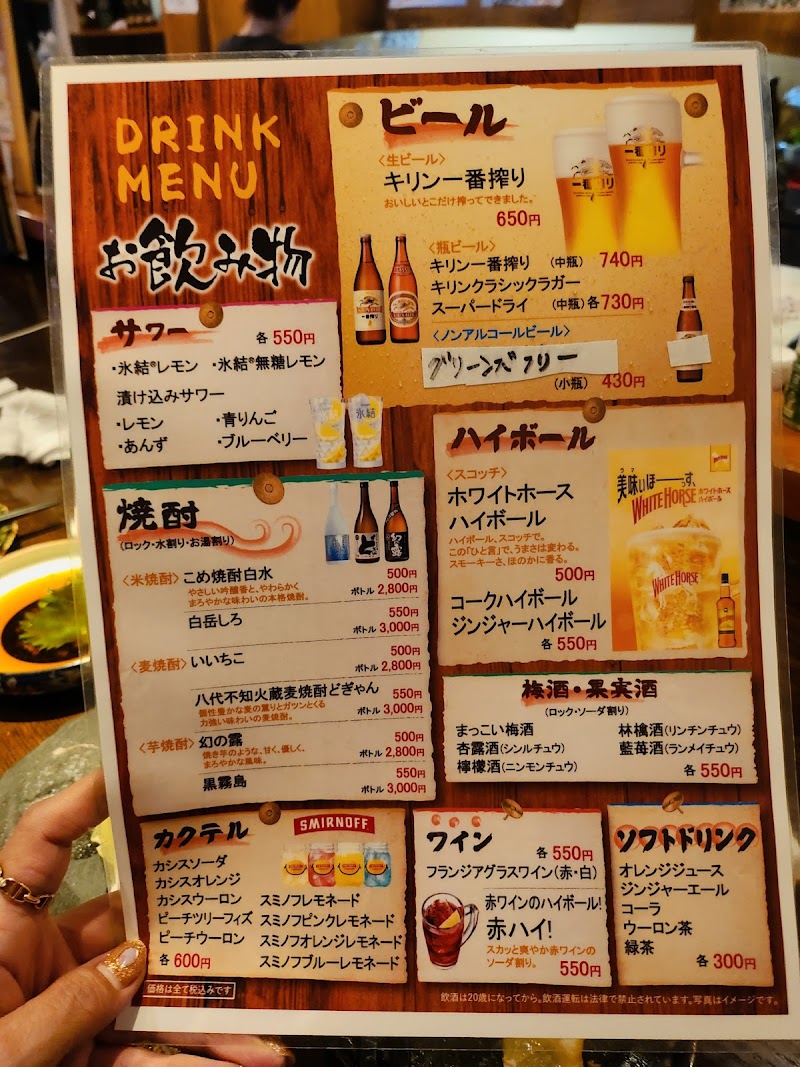 DRINK
MENU
お飲み物
ビール
〈生ビール〉
キリン一番搾り
おいしいとこだけ搾ってできました。
650円
〈瓶ビール〉
キリン一番搾り (中瓶) 740円
キリンクラシックラガー
スーパードライ (中瓶) 各730円
〈ノンアルコールビール〉
グリーンズフリー
(小瓶) 430円
サワー
各 550円
・氷結®レモン ・氷結®無糖レモン
漬け込みサワー
・レモン ・青りんご
・あんず ・ブルーベリー
焼酎
(ロック・水割り・お湯割り)
〈米焼酎〉 こめ焼酎白水 500円
やさしい吟醸香と、やわらかく
まろやかな味わいの本格焼酎。
ボトル 2,800円
白岳しろ 550円
ボトル 3,000円
〈麦焼酎〉 いいちこ 500円
ボトル 2,800円
八代不知火蔵麦焼酎どぎゃん 550円
個性豊かな麦の薫りとガツンとくる
力強い味わいの麦焼酎。
ボトル 3,000円
〈芋焼酎〉 幻の露 500円
焼き芋のような、甘く、優しく、
まろやかな風味。
ボトル 2,800円
黒霧島 550円
ボトル 3,000円
ハイボール
〈スコッチ〉
ホワイトホース
ハイボール
ハイボール、スコッチで。
この「ひと言」で、うまさは変わる。
スモーキーさ、ほのかに香る。
500円
コークハイボール
ジンジャーハイボール
各 550円
ウマ
美味いほーっす、
WHITE HORSE
ホワイトホース
ハイボール
WHITE HORSE
梅酒・果実酒
(ロック・ソーダ割り)
まっこい梅酒 林檎酒(リンチンチュウ)
杏露酒(シンルチュウ) 藍苺酒(ランメイチュウ)
檸檬酒(ニンモンチュウ)
各 550円
カクテル
SMIRNOFF
カシスソーダ
カシスオレンジ
カシスウーロン
ピーチツリーフィズ
ピーチウーロン
スミノフレモネード
スミノフピンクレモネード
スミノフオレンジレモネード
スミノフブルーレモネード
各 600円
ワイン
各 550円
フランジアグラスワイン(赤・白)
赤ワインのハイボール!
赤ハイ!
スカッと爽やか赤ワインの
ソーダ割り。
550円
ソフトドリンク
オレンジジュース
ジンジャーエール
コーラ
ウーロン茶
緑茶
各 300円
価格は全て税込みです
飲酒は20歳になってから。飲酒運転は法律で禁止されています。写真はイメージです。